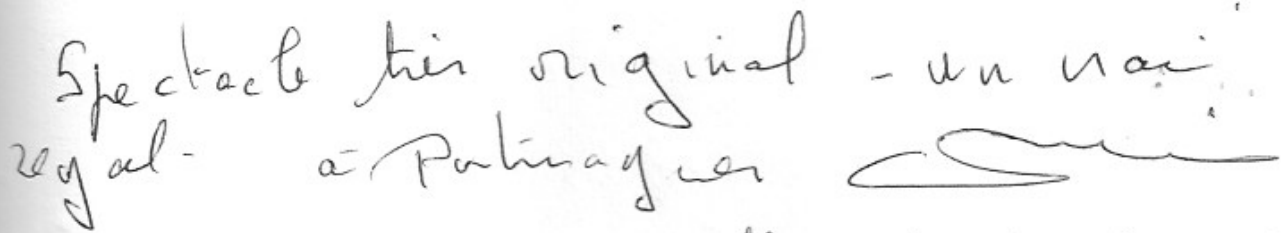 Spectacle très original - un vrai
régal - à Portiragnes